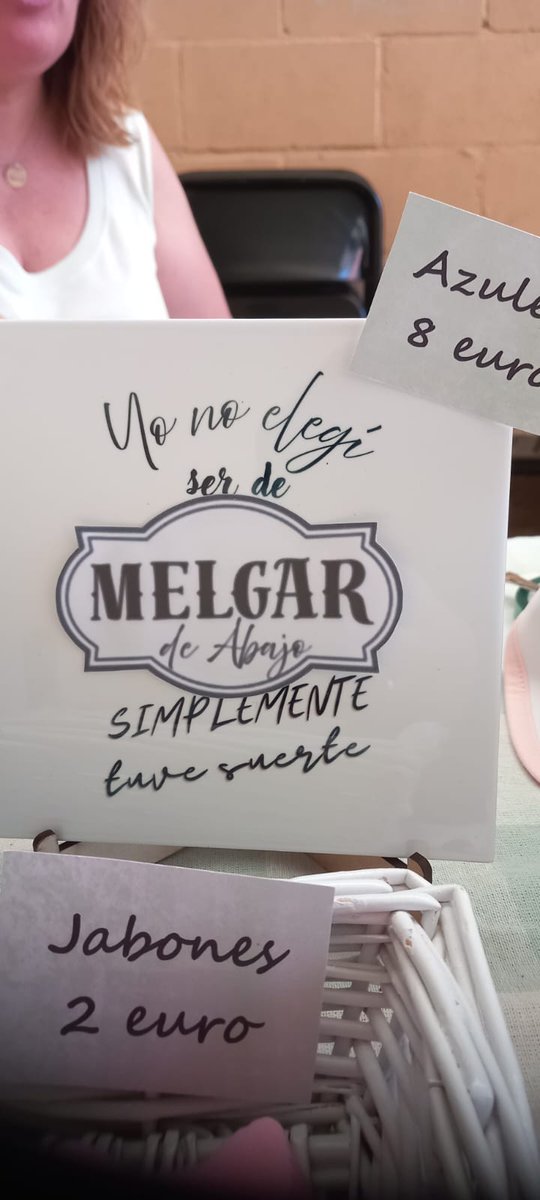 8 euro
Yo no elegí
ser de
MELGAR
de Abajo
SIMPLEMENTE
tuve suerte
Jabones
2 euro